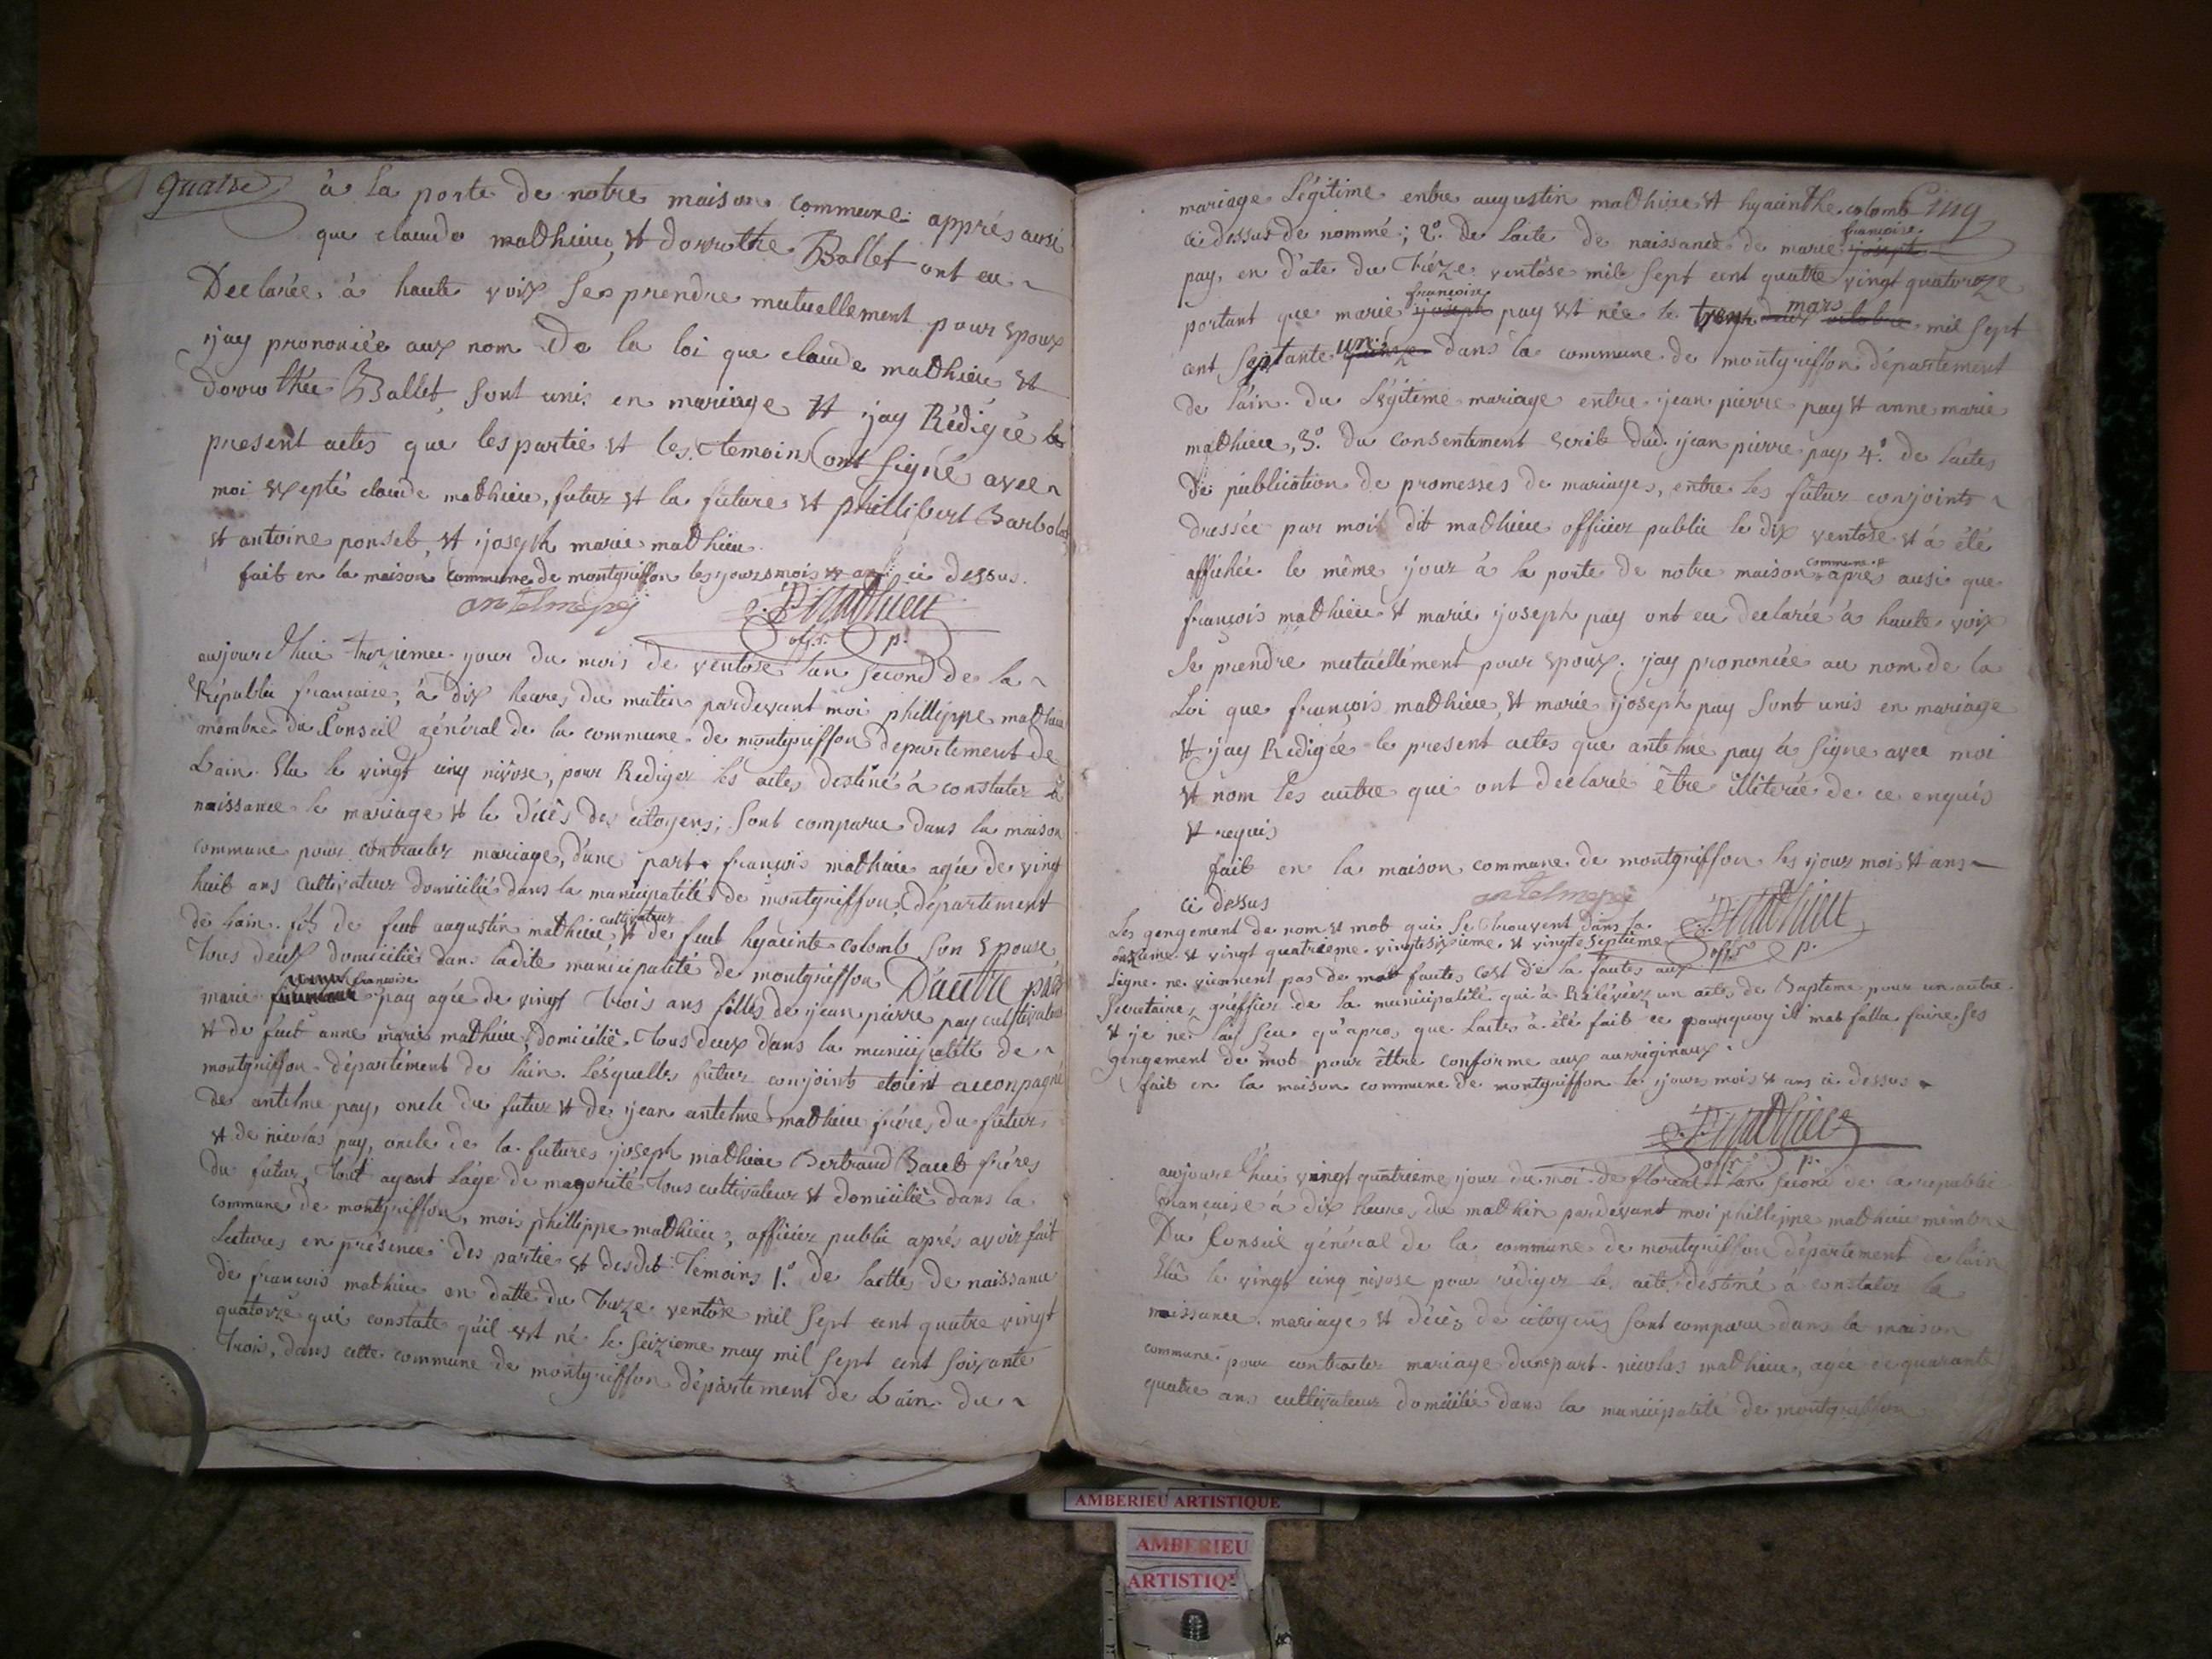 quatre
à la porte de notre maison commune apprés ausi
que claude mathieu, et dorrothe Ballet ont eu
Declarée, à haute voix se prendre mutuellement pour epoux
ijay prononcée aux nom de la loi que claude mathieu et
dorrothée Ballet, sont unis en mariage et ijay Rédigée le
present actes que les partie et les temoins ont signé avec
moi exepté claude mathieu, futur et la future et phillibert Barbolat
et antoine ponset, et ijoseph marie mathieu.
fait en la maison commune de montgriffon les ijours mois et an ci dessus.
antelmepey P. Mathieu
off.r p.
aujourd'hui trezieme ijour du mois de ventose lan second de la
Républic francoise, à dix heures du matin pardevant moi phillippe mathieu
membre du Conseil général de la commune de montgriffon departement de
Lain. Elu le vingt cinq nivose, pour Rediger les actes destiné à constater la
naissance le mariage et le décès des citoyens; sont comparu dans la maison
commune pour contracter mariage, d'une part françois mathieu agée de vingt
huit ans cultivateur domicilié dans la municipalité de montgriffon, département
de lain. fils de feut augustin mathieu cultivateur et de feut hyacinte colomb son epouse
tous deux domiciliés dans ladite municipalité de montgriffon D'autre part
marie francoise pay agée de vingt trois ans filles de ijean pierre pay cultivateur
et de feut anne marie mathieu, domicilié tous deux dans la municipalité de
montgriffon département de lain. Lésquelles futur conjoints etoient accompagné
de antelme pay, oncle du futur et de ijean antelme mathieu frére, du futur,
et de nicolas pay, oncle de la futures ijoseph mathieu Bertrand Baub fréres
du futur, tout ayant l'age de magorité tous cultivateur et domicilié dans la
commune de montgriffon, mois phillippe mathieu, officier public aprés avoir fait
Lectures en présence des partie et desdit temoins 1.o de lactte de naissance
de françois mathieu en datte du treze ventose mil sept cent quatre vingt
quatorze qui constate qu'il est né le seizieme may mil sept cent soixante
trois, dans cette commune de montgriffon département de Lain. du
cinq
mariage légitime entre augustin mathieu et hyacinthe colomb
ci dessus de nommé; 2.o De lacte de naissance de marie ijoseph francoise
pay, en d'ate du trèze ventôse mile sept cent quatre vingt quatorze
portant que marie ijoseph francoise pay est née le mars mil sept
cent septante un dans la commune de montgriffon département
de l'ain. du Légitime mariage entre ijean pierre pay et anne marie
mathieu, 3.o du consentement ecrit dud. ijean pierre pay 4.o de lactes
de publication de promesses de mariages, entre les futur conjoints
dressée par moi dit mathieu officier public le dix ventôse et à été
affichée le même ijour à la porte de notre maison commune et après ausi que
françois mathieu et marie ijoseph pay ont eu declarée à haute voix
Se prendre mutuéllément pour epoux. ijay prononcée au nom de la
Loi que françois mathieu, et marie ijoseph pay sont unis en mariage
et ijay Redigée le present actes que antelme pay à signe avec moi
et nom les autre qui ont declarée être illiterée de ce enquis
et requis
fait en la maison commune de montgriffon les ijour mois et ans
ci dessus
antelmepey P. Mathieu
off.r p.
Les gengement de nom et mot qui se trouvent dans la
onzieme et vingt quatrieme vingtesixieme et vingteseptieme
ligne ne viennent pas de fautes cest de la fautes aux
Secretaire, gréffier de la municipalité qui à Rélévéez un actes de Baptéme pour un autre
et ije ne lay seu qu'apro, que lactes à été fait ce pourquoy il mat fállu faire ses
gengement de mot pour éttre conforme aux aurriginaux.
fait en la maison commune de montgriffon le ijours mois et ans ci dessus
P. Mathieu
off.r p.
aujourd'hui vingt quatrieme ijour du moi de floreal lan second de la republic
francaise à dix heures du mathin pardevant moi phillippe mathieu mémbre
Du Conseil général de la commune de montgriffon département de lain
Elû le vingt cinq nivose pour rédiger les acte destiné à constater la
naissance mariage et décès de citoyens sont comparu dans la maison
commune pour contracter mariage dunepart nicolas mathieu, agée de quarante
quatre ans cultivateur domicilié dans la municipalité de montgriffon
AMBERIEU ARTISTIQUE
AMBERIEU
ARTISTIQ